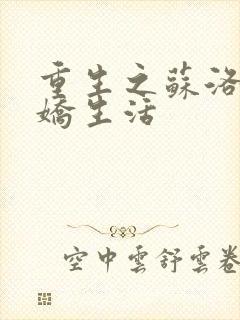 重生之蘇洛
嬌生活
空中雲舒雲卷